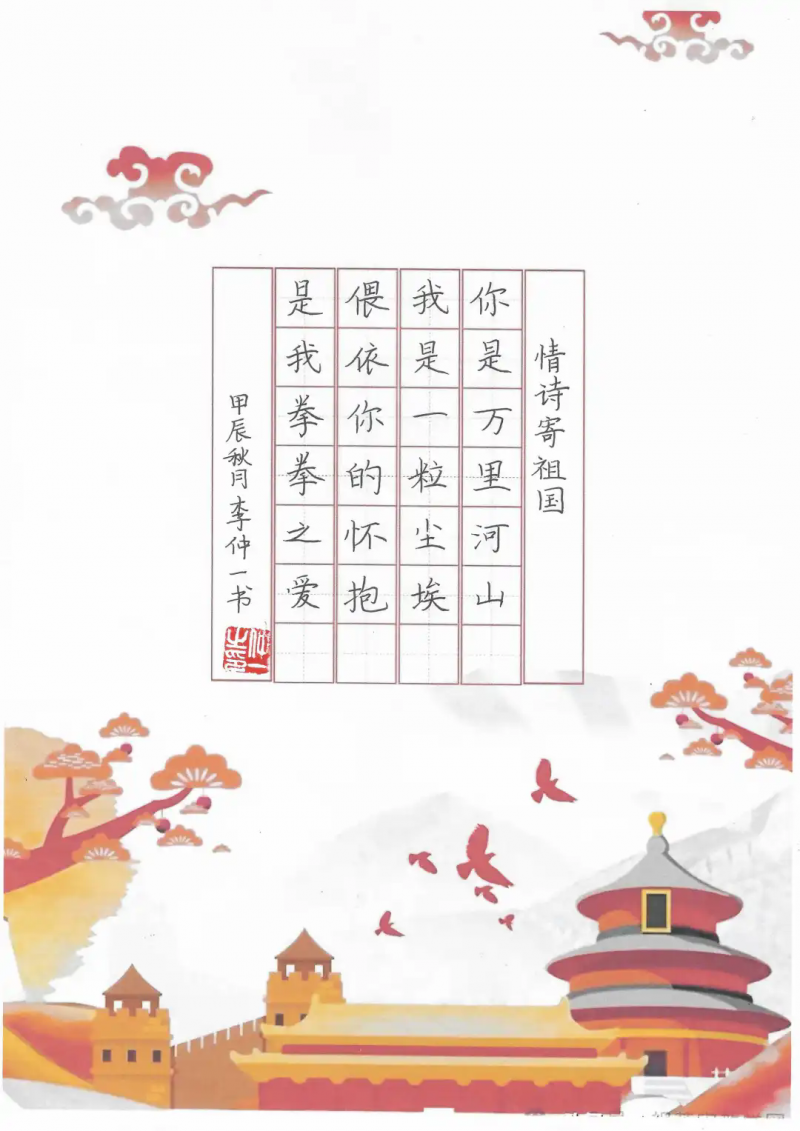 情诗寄祖国
你是万里河山
我是一粒尘埃
偎依你的怀抱
是我拳拳之爱
甲辰秋月李仲一书
仲一之印